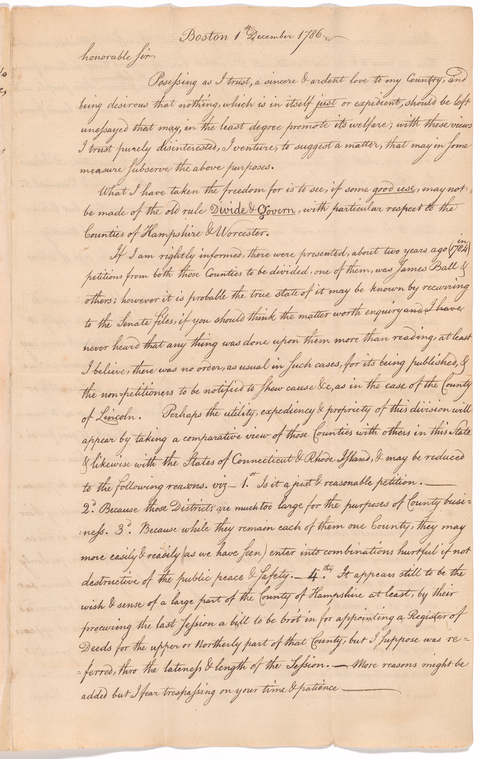 Boston 1st December 1786.
honorable Sir
Posessing as I trust, a sincere & ardent love to my Country, and
being desirous that nothing, which is in itself just or expedient, should be left
unessayed that may, in the least degree promote its welfare; with these views
I trust purely disinterested, I venture, to suggest a matter, that may in some
measure subserve the above purposes.
What I have taken the freedom for is to see, if some good use, may not
be made of the old rule Divide & Govern, with particular respect to the
Counties of Hampshire & Worcester.
If I am rightly informed, there were presented, about two years ago (in 1784)
petitions from both those Counties to be divided, one of them, was James Ball &
others; however it is probable the true state of it may be known by recurring
to the Senate files, if you should think the matter worth enquiry and I have
never heard that any thing was done upon them more than reading, at least
I believe, there was no order, as usual in such cases, for its being published, &
the non-petitioners to be notified to shew cause &c, as in the case of the County
of Lincoln. Perhaps the utility, expediency & propriety of this division will
appear by taking a comparative view of those Counties with others in this State
& likewise with the States of Connecticut & Rhode Island, & may be reduced
to the following reasons. viz - 1st. Is it a just & reasonable petition.
2d. Because those Districts are much too large for the purposes of County busi-
ness. 3d. Because while they remain each of them one County, they may
more easily & readily (as we have seen) enter into combinations hurtful if not
destructive of the public peace & safety. - 4th. It appears still to be the
wish & sense of a large part of the County of Hampshire at least, by their
procuring the last Session a bill to be bro't in for appointing a Register of
Deeds for the upper or Northerly part of that County, but I suppose was re-
=ferred, thro the lateness & length of the Session. — More reasons might be
added but I fear trespassing on your time & patience